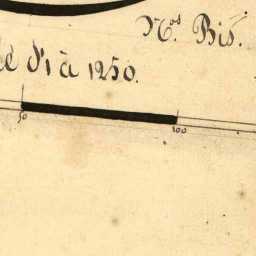 Nos. Bis.
d'1 à 1250.
50 100